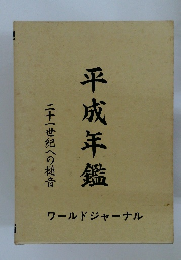 平成年鑑
二十一世紀への槌音
ワールドジャーナル